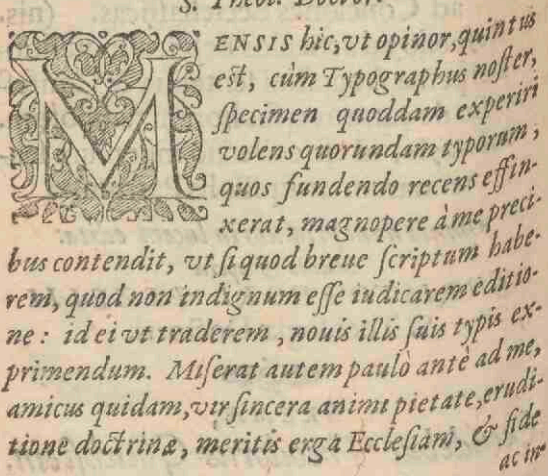 S. Theol. Doctor.
MENSIS hic, vt opinor, quintus
est, cùm Typographus noster,
specimen quoddam experiri
volens quorundam typorum,
quos fundendo recens effin-
xerat, magnopere à me preci-
bus contendit, vt si quod breue scriptum habe-
rem, quod non indignum esse iudicarem editio-
ne: id ei vt traderem, nouis illis suis typis ex-
primendum. Miserat autem paulò antè ad me,
amicus quidam, vir sincera animi pietate, erudi-
tione doctrinæ, meritis erga Ecclesiam, & fide
ac in-